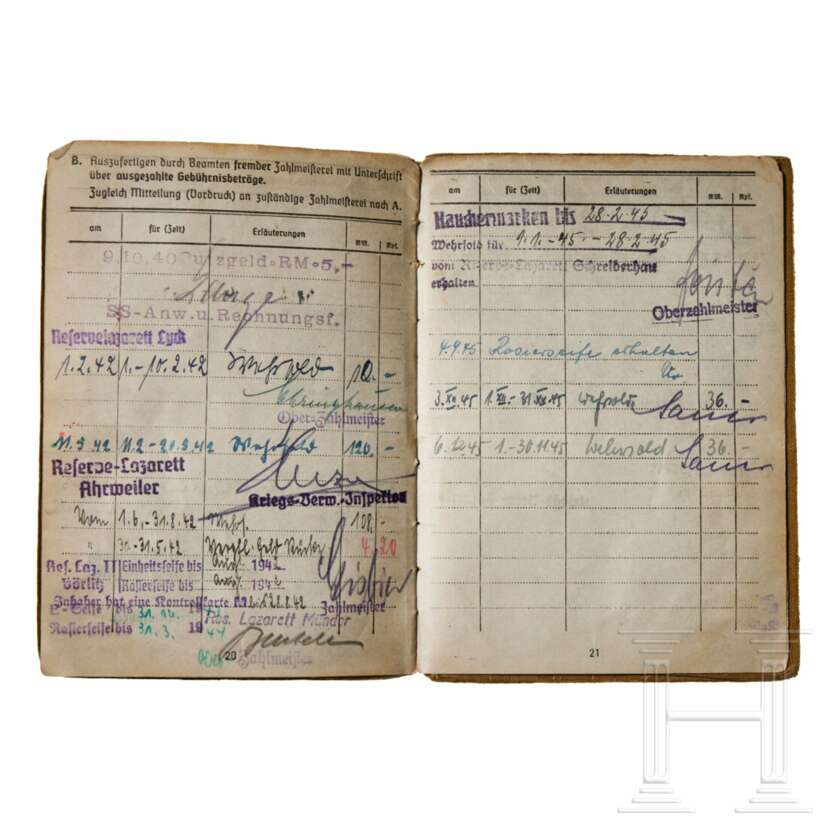 B. Auszufertigen durch Beamten fremder Zahlmeisterei mit Unterschrift
über ausgezahlte Gebührnisbeträge.
Zugleich Mitteilung (Vordruck) an zuständige Zahlmeisterei nach A.
am für (Zeit) Erläuterungen RM. Rpf.
9.10.40 Putzgeld RM 5,-
SS-Anw.u.Rechnungsf.
Reservelazarett Lyck
1.2.42 1.-10.2.42 Wehrsold 10.-
Ober-Zahlmeister
11.3.42 11.2-20.3.42 Wehrsold 120.-
Reserve-Lazarett
Ahrweiler
Kriegs-Verw.-Inspektor
Vom 1.6.-31.8.42 Wehrs. 108,-
30.-31.5.42 Verpfl. Geld 4.20
Res. Laz. II Einheitsseife bis Aug. 194
Görlitz Rasierseife bis Aug. 194
Inhaber hat eine Kontrollkarte
Zahlmeister
E-Seife bis 31.12.
Rasierseife bis 31.3. 1944
Res. Lazarett Münder
Zahlmeister
20
am für (Zeit) Erläuterungen RM. Rpf.
Rauchermarken bis 28.2.45
Wehrsold für 1.1.-45.-28.2.45
vom Reserve-Lazarett Schreiberhau
erhalten
Oberzahlmeister
4.9.45 Rasierseife erhalten
3.XII.45 1.XII-31.XII.45 Wehrsold 36.-
6.12.45 1.-30.11.45 Wehrsold 36.-
21
H